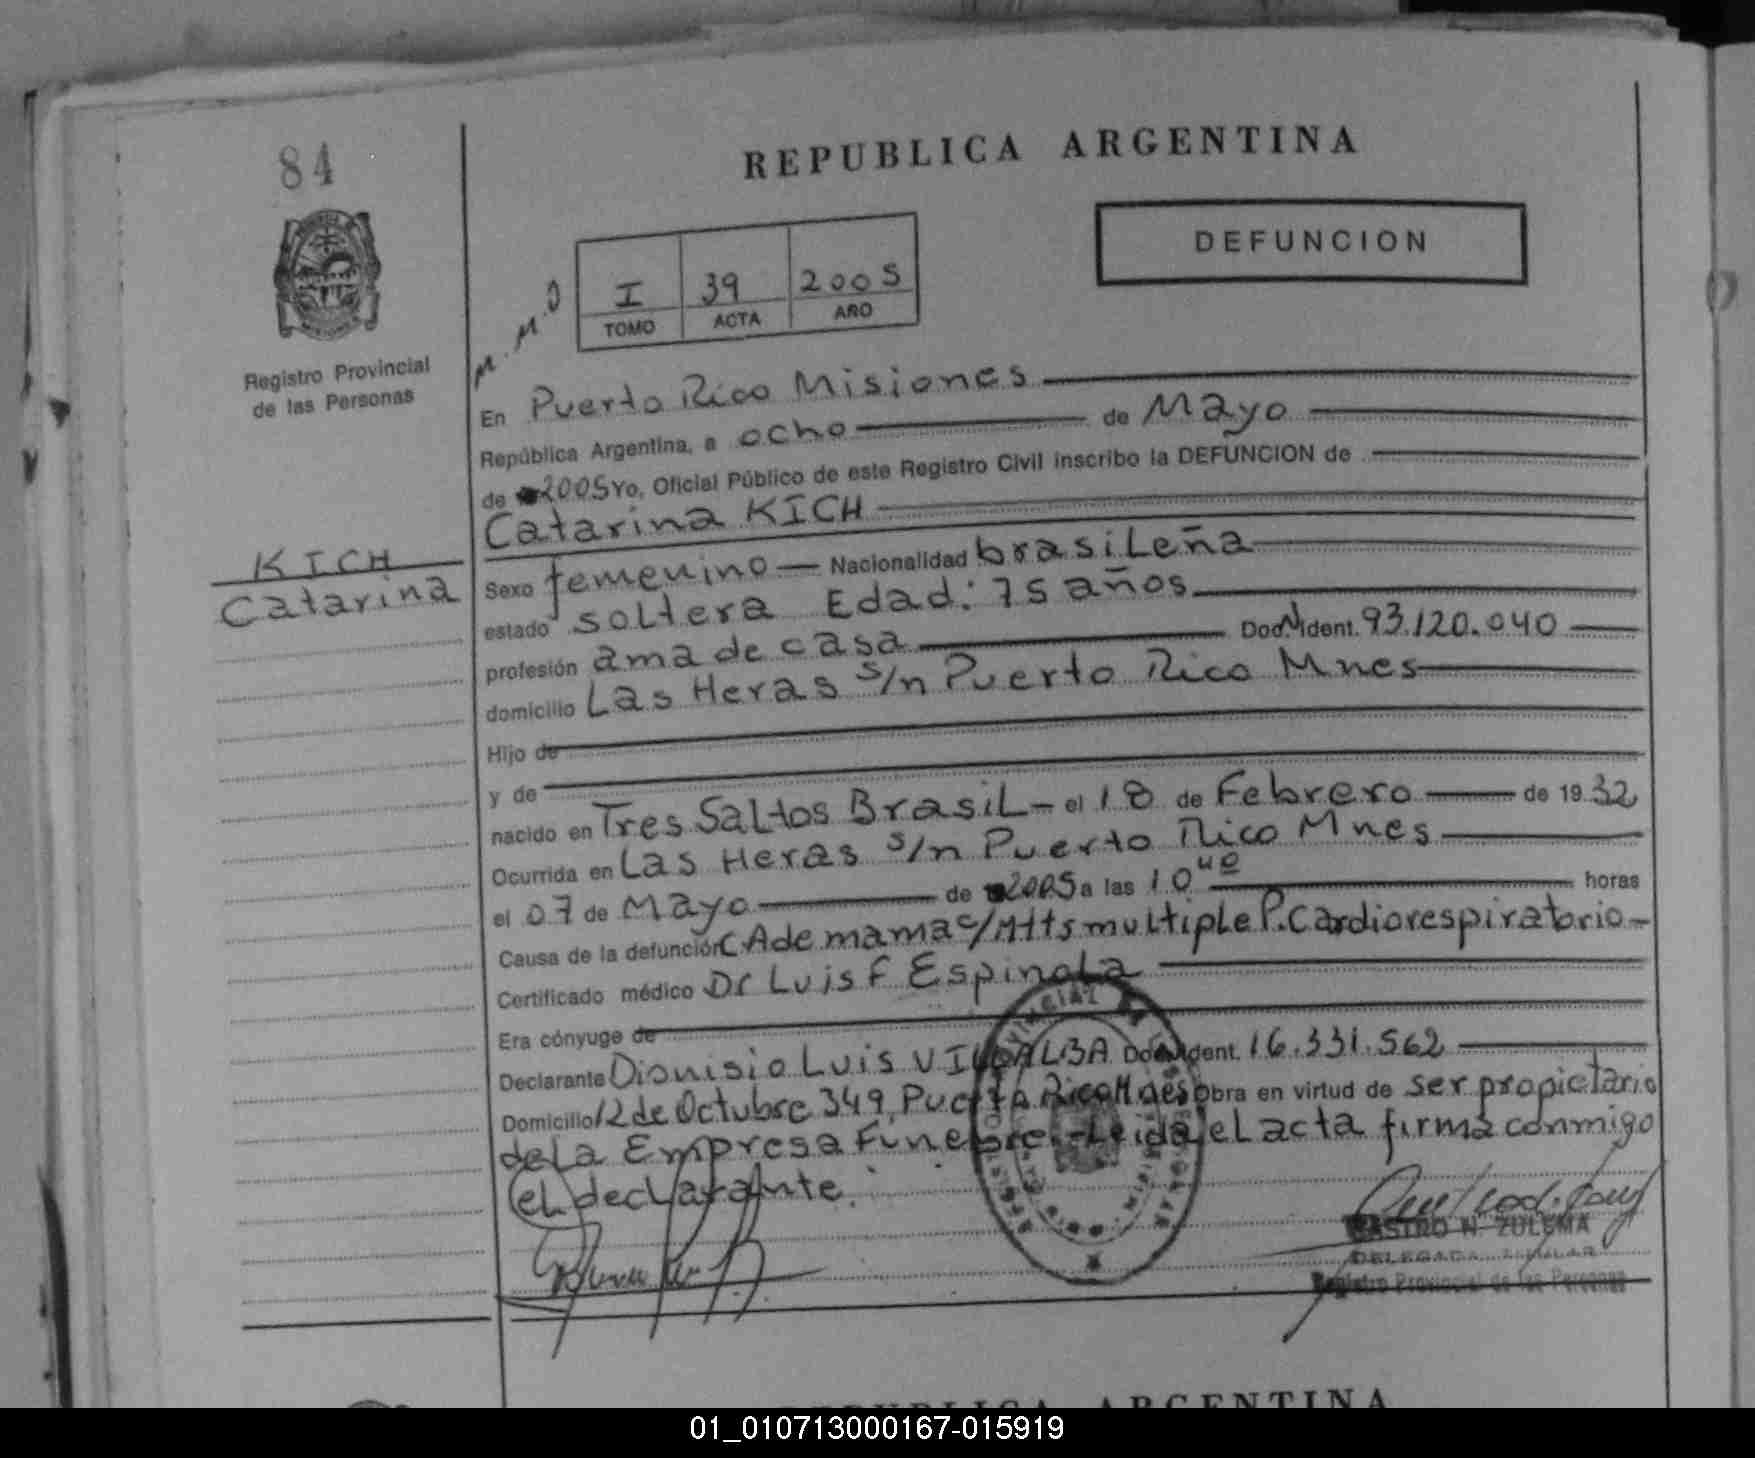 84
REPUBLICA ARGENTINA
DEFUNCION
I 39 2005
TOMO ACTA AÑO
M.M.O
Registro Provincial
de las Personas
KICH
Catarina
En Puerto Rico Misiones
República Argentina, a ocho de Mayo
de 2005 Yo, Oficial Público de este Registro Civil inscribo la DEFUNCION de
Catarina KICH
Sexo femenino Nacionalidad brasiLeña
estado soLtera Edad: 75 años
profesión ama de casa Doc. Ident. 93.120.040
domicilio Las Heras s/n Puerto Rico Mnes
Hijo de
y de
nacido en Tres SaLtos BrasiL - el 18 de Febrero de 19 32
Ocurrida en Las Heras s/n Puerto Rico Mnes
el 07 de Mayo de 2005 a las 10 40 horas
Causa de la defunción CA de mama c/Mtts muLtipLe P. Cardiorespiratorio -
Certificado médico Dr Luis F EspinoLa
Era cónyuge de
Declarante Dionisio Luis VILLALBA Doc. Ident. 16.331.562
Domicilio 12 de Octubre 349, Puerto Rico Mnes Obra en virtud de ser propietario
de La Empresa Funebre.-Leida eL acta firma conmigo
eL decLarante.
CASTRO N. ZULEMA
DELEGADA TITULAR
Registro Provincial de las Personas
REPUBLICA ARGENTINA
01_010713000167-015919